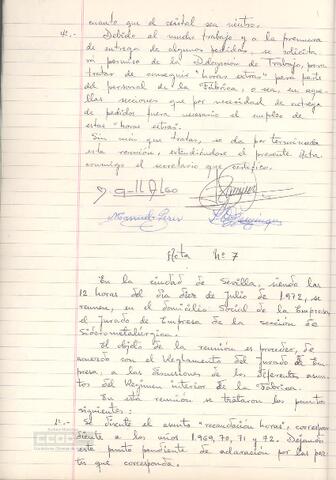 cuanto que el cristal sea neutro.
4º.- Debido al mucho trabajo y a la premura
de entrega de algunos pedidos, se solicita
un permiso de la Delegación de Trabajo, para
tratar de conseguir "horas extras" para parte
del personal de la Fábrica, o sea, en aque-
llas secciones que por necesidad de entrega
de pedidos fuera necesario el empleo de
estas "horas extras".
Sin más que tratar, se da por terminada
esta reunión, extendiéndose el presente Acta
conmigo el secretario que certifico.
Acta Nº 7
En la ciudad de Sevilla, siendo las
12 horas del día diez de Julio de 1.972, se
reunen, en el domicilio Social de la Empresa
el Jurado de Empresa de la sección de
Siderometalúrgica.
El objeto de la reunión es proceder, de
acuerdo con el Reglamento del Jurado de Em-
presa, a las discusiones de los diferentes asun-
tos del Regimen interior de la Fábrica.
En esta reunión se trataron los puntos
siguientes:
1º.- Se discute el asunto "recaudación horas", correspon-
diente a los años 1.969, 70, 71 y 72. Dejando
este punto pendiente de aclaración por las par-
tes que corresponda.
CCOO